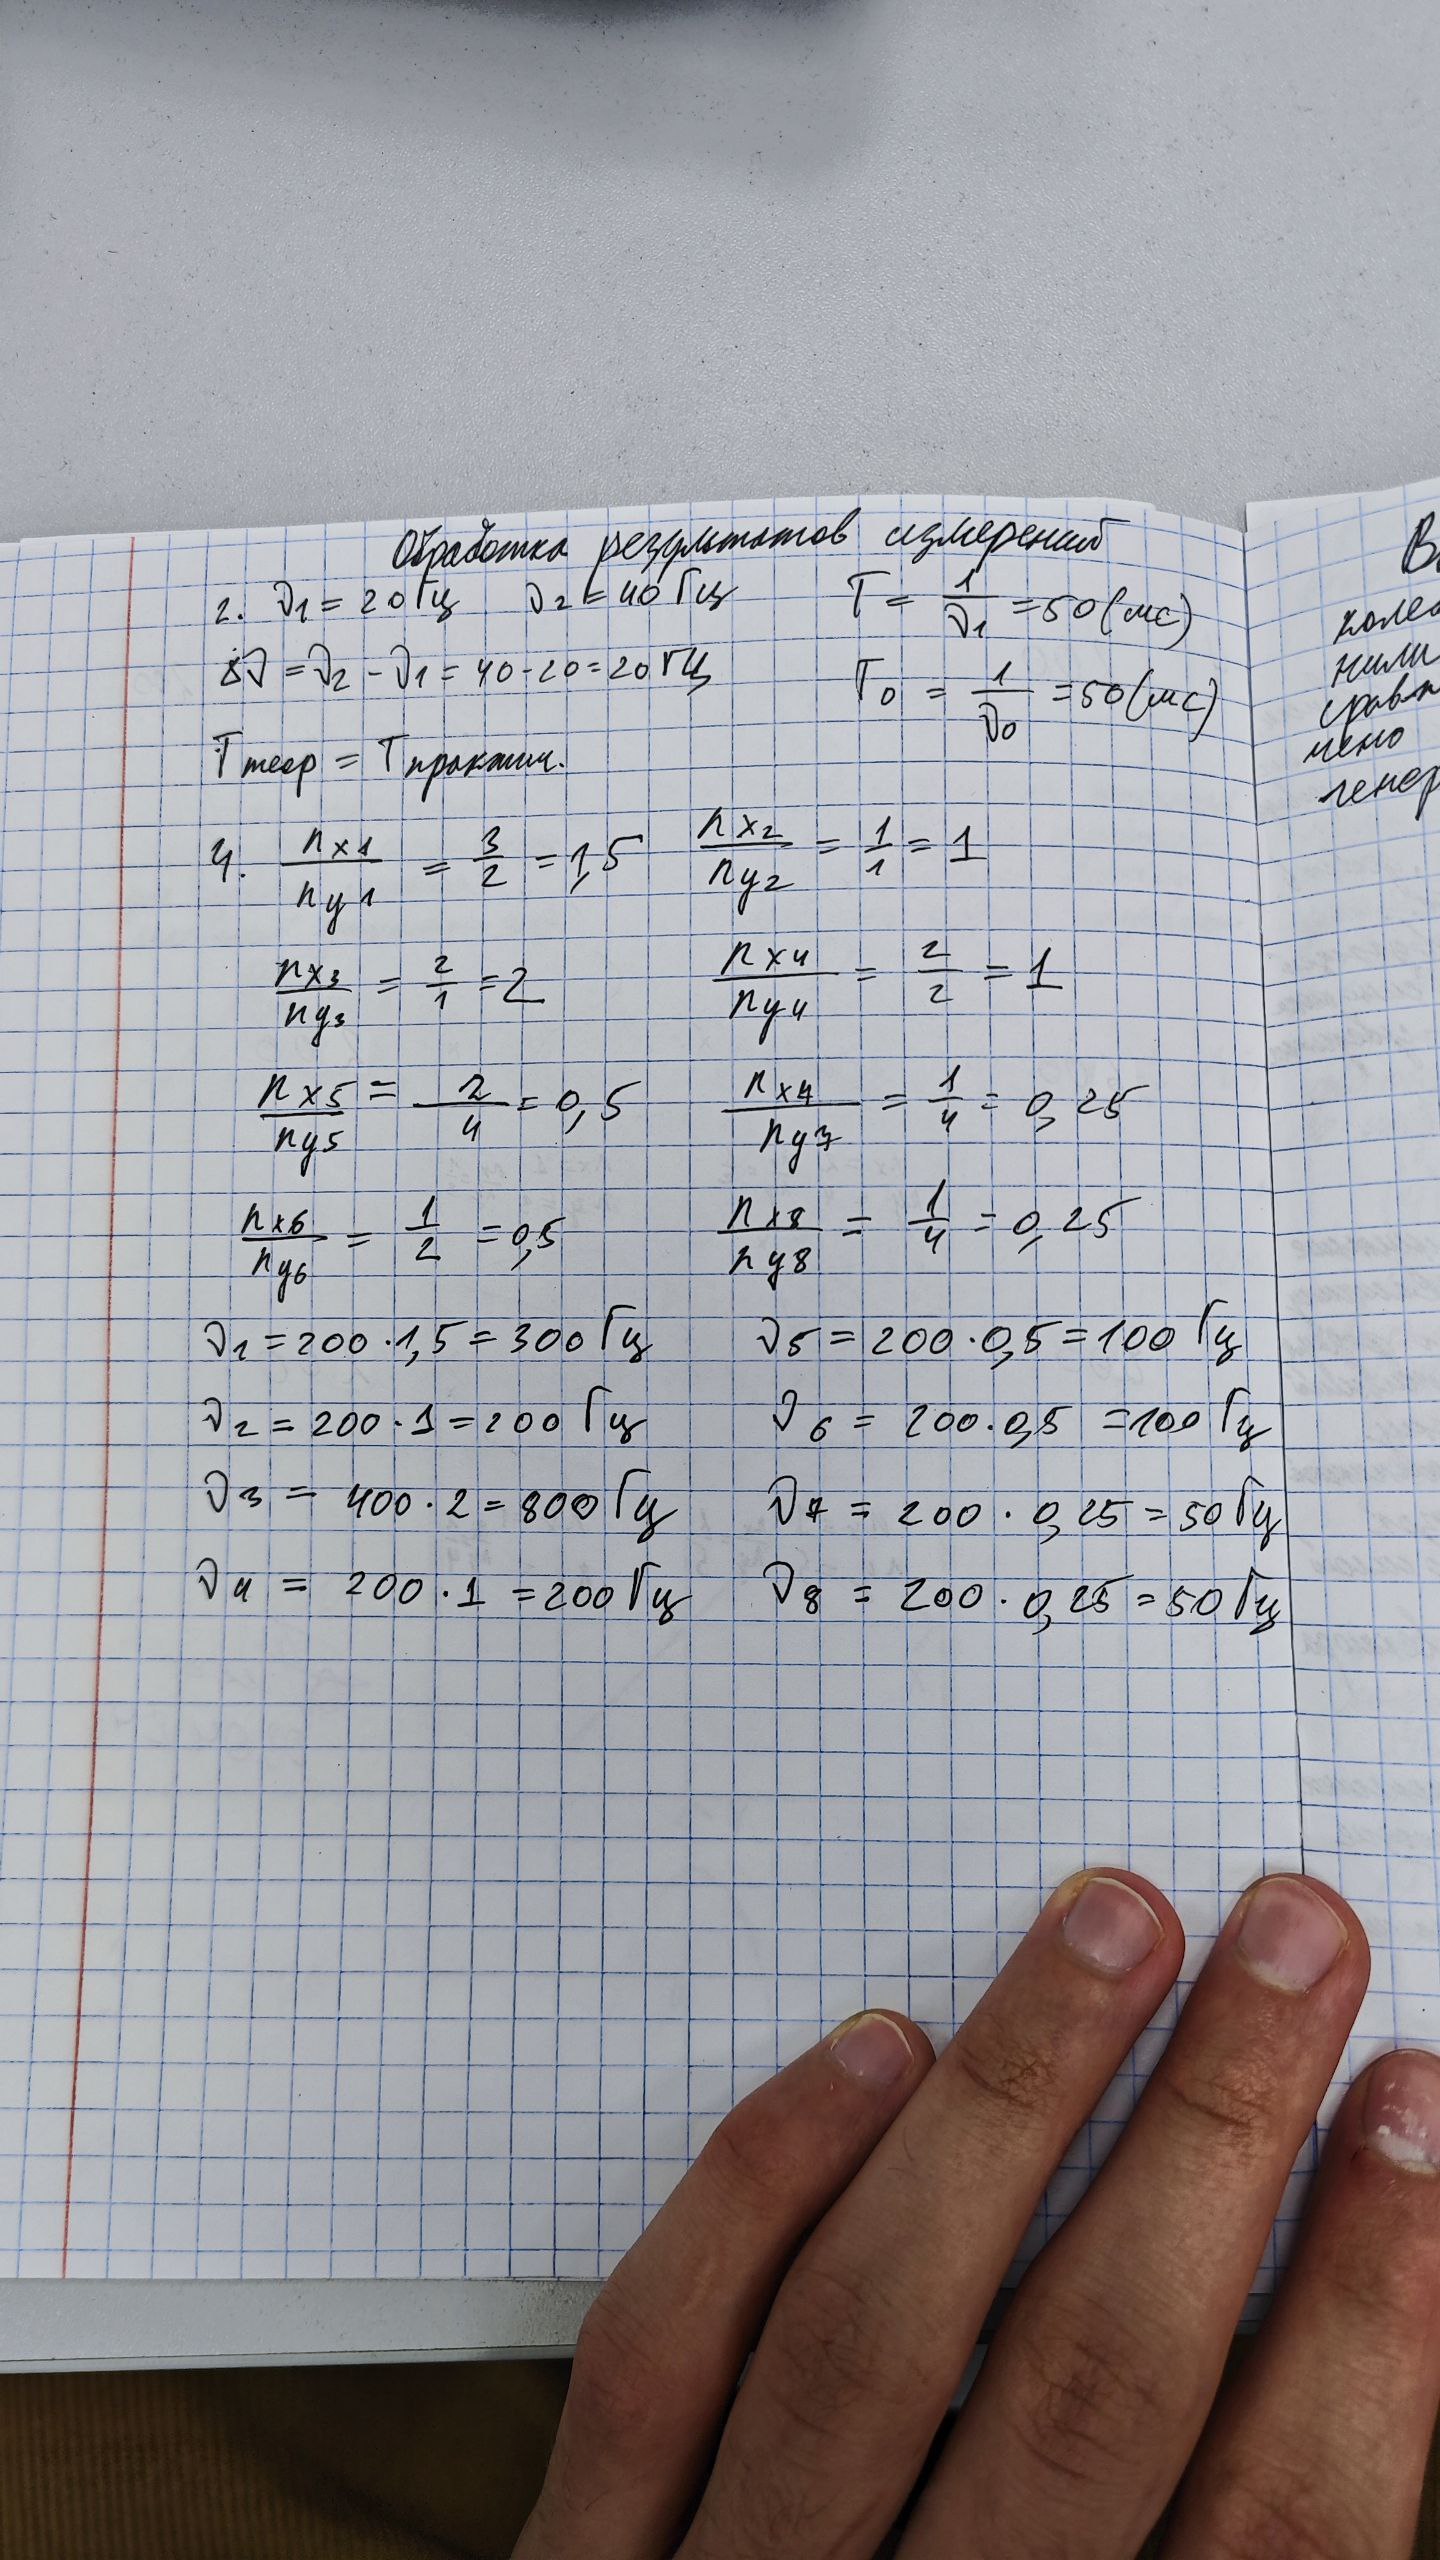 Обработка результатов измерений
2. ν1 = 20 Гц ν2 = 40 Гц T = 1/ν1 = 50 (мс)
δν = ν2 - ν1 = 40 - 20 = 20 Гц T0 = 1/ν0 = 50 (мс)
Tтеор = Tпрактич.
4. nx1/ny1 = 3/2 = 1,5 nx2/ny2 = 1/1 = 1
nx3/ny3 = 2/1 = 2 nx4/ny4 = 2/2 = 1
nx5/ny5 = 2/4 = 0,5 nx7/ny7 = 1/4 = 0,25
nx6/ny6 = 1/2 = 0,5 nx8/ny8 = 1/4 = 0,25
ν1 = 200 · 1,5 = 300 Гц ν5 = 200 · 0,5 = 100 Гц
ν2 = 200 · 1 = 200 Гц ν6 = 200 · 0,5 = 100 Гц
ν3 = 400 · 2 = 800 Гц ν7 = 200 · 0,25 = 50 Гц
ν4 = 200 · 1 = 200 Гц ν8 = 200 · 0,25 = 50 Гц